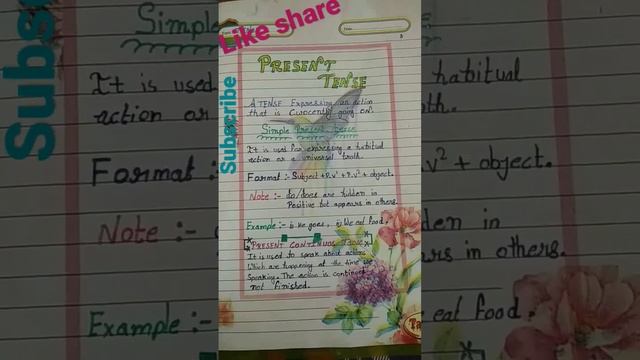 Like share
Subscribe
Subscribe
PRESENT
TENSE
A TENSE Expressing an action
that is Currently going on.
Simple Present Tense
It is used for expressing a habitual
action or a universal truth.
Format :- Subject + P.v¹ + P.v² + object.
Note :- do/does are hidden in
Positive but appears in others.
Example :- i, He goes, ii, We eat food.
PRESENT CONTINUOUS TENSE
It is used to speak about actions
Which are happening at the time
Speaking. The action is continued
not finished.
Simple
It is used
action or
Format :-
Note :-
Example :-
habitual
.v² + object.
in others.
eat food.